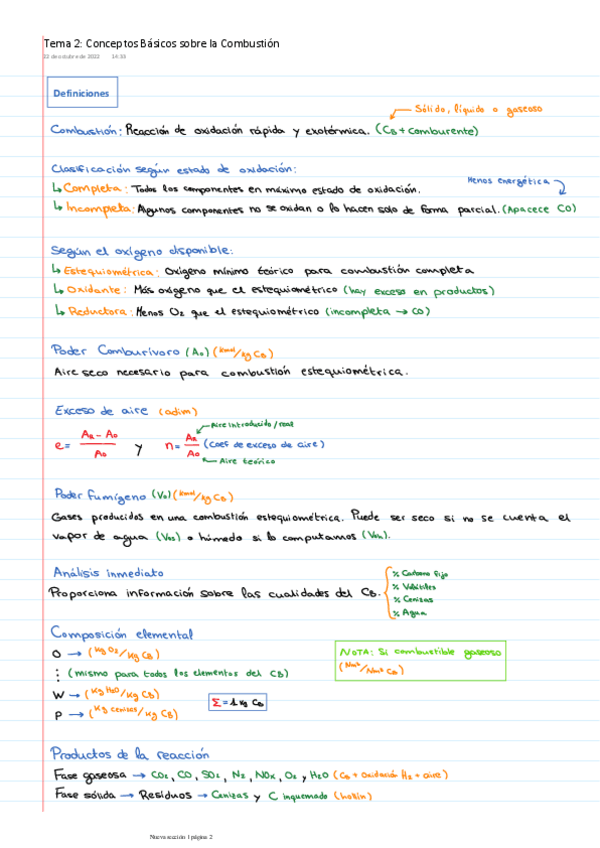 Tema 2: Conceptos Básicos sobre la Combustión
22 de octubre de 2022 14:33
Definiciones
Sólido, líquido o gaseoso
Combustión: Reacción de oxidación rápida y exotérmica. (CB + Comburente)
Clasificación según estado de oxidación:
Menos energética
↳ Completa: Todos los componentes en máximo estado de oxidación.
↳ Incompleta: Algunos componentes no se oxidan o lo hacen solo de forma parcial. (Apacece CO)
Según el oxígeno disponible:
↳ Estequiométrica: Oxígeno mínimo teórico para combustión completa
↳ Oxidante: Más oxígeno que el estequiométrico (hay exceso en productos)
↳ Reductora: Menos O2 que el estequiométrico (incompleta → CO)
Poder Comburívoro (Ao) (kmol/kg CB)
Aire seco necesario para combustión estequiométrica.
Exceso de aire (adim)
Aire introducido / real
e = AR - Ao / Ao y n = AR / Ao (coef de exceso de aire)
Aire teórico
Poder fumígeno (Vo) (kmol/kg CB)
Gases producidos en una combustión estequiométrica. Puede ser seco si no se cuenta el
vapor de agua (Vos) o húmedo si lo computamos (Voh).
Análisis inmediato
Proporciona información sobre las cualidades del CB.
% Carbono fijo
% Volátiles
% Cenizas
% Agua
Composición elemental
O → (kg O2/kg CB)
⋮ (mismo para todos los elementos del CB)
W → (kg H2O/kg CB)
P → (kg cenizas/kg CB)
Σ = 1 kg CB
NOTA: Si combustible gaseoso
(Nm³/Nm³ CB)
Productos de la reacción
Fase gaseosa → CO2, CO, SO2, N2, NOx, O2 y H2O (CB + oxidación H2 + aire)
Fase sólida → Residuos → Cenizas y C inquemado (hollín)
Nueva sección 1 página 2